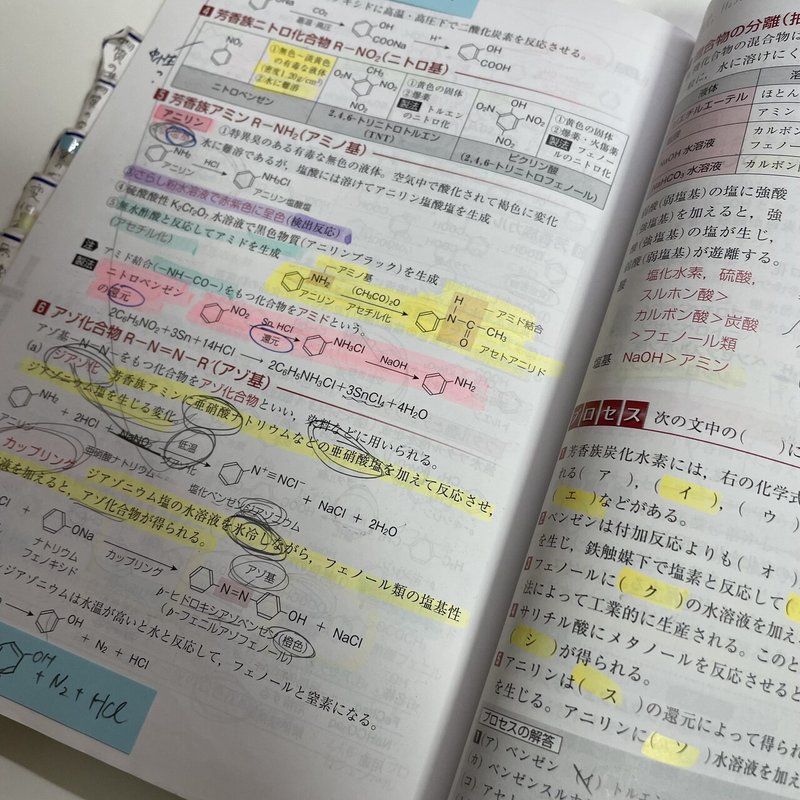 キシドに高温・高圧下で二酸化炭素を反応させる。
ONa
CO₂
高温・高圧
OH
COONa
H⁺
OH
COOH
4 芳香族ニトロ化合物 R-NO₂(ニトロ基)
NO₂
①無色～淡黄色の有毒な液体
(密度1.20g/cm³)
②水に難溶
CH₃
O₂N
NO₂
NO₂
①黄色の固体
②爆薬
製法 トルエンのニトロ化
OH
O₂N
NO₂
NO₂
①黄色の固体
②爆薬・火傷薬
製法 フェノールのニトロ化
ニトロベンゼン
2,4,6-トリニトロトルエン
(TNT)
ピクリン酸
(2,4,6-トリニトロフェノール)
5 芳香族アミン R-NH₂(アミノ基)
アニリン
①特異臭のある有毒な無色の液体。空気中で酸化されて褐色に変化
水に難溶であるが，塩酸には溶けてアニリン塩酸塩を生成
NH₂
HCl
NH₃Cl
アニリン塩酸塩
③さらし粉水溶液で赤紫色に呈色(検出反応)
④硫酸酸性 K₂Cr₂O₇ 水溶液で黒色物質(アニリンブラック)を生成
⑤無水酢酸と反応してアミドを生成
(アセチル化)
アミド結合(-NH-CO-)をもつ化合物をアミドという。
NH₂
アミノ基
アニリン
(CH₃CO)₂O
アセチル化
H
N-C-CH₃
O
アミド結合
アセトアニリド
製法 ニトロベンゼンの還元
NO₂
Sn, HCl
還元
NH₃Cl
NaOH
NH₂
2C₆H₅NO₂+3Sn+14HCl → 2C₆H₅NH₃Cl+3SnCl₄+4H₂O
6 アゾ化合物 R-N=N-R(アゾ基)
アゾ基-N=N-をもつ化合物をアゾ化合物といい，染料などに用いられる。
(a) ジアゾ化 芳香族アミンに亜硝酸ナトリウムなどの亜硝酸塩を加えて反応させ，
ジアゾニウム塩を生じる変化
NH₂ + 2HCl + NaNO₂
低温
ジアゾ化
N⁺≡NCl⁻ + NaCl + 2H₂O
アニリン
亜硝酸ナトリウム
塩化ベンゼンジアゾニウム
カップリング ジアゾニウム塩の水溶液を氷冷しながら，フェノール類の塩基性
液を加えると，アゾ化合物が得られる。
ONa
ナトリウムフェノキシド
カップリング
アゾ基
N=N
OH + NaCl
p-ヒドロキシアゾベンゼン
(p-フェニルアゾフェノール)
橙色
ジアゾニウムは水温が高いと水と反応して，フェノールと窒素になる。
OH + N₂ + HCl
OH + N₂ + HCl
合物の分離(抽
化合物の混合物に
に，水に溶けにく
液体
エチルエーテル
ほとん
NaOH 水溶液
カルボン
フェノー
NaHCO₃ 水溶液
カルボン
(弱塩基)の塩に強酸
(強塩基)を加えると，強
(強塩基)の塩が生じ，
弱酸(弱塩基)が遊離する。
酸 塩化水素，硫酸，
スルホン酸>
カルボン酸>炭酸
>フェノール類
塩基 NaOH>アミン
プロセス 次の文中の( )に
芳香族炭化水素には，右の化学式
れる(ア)，(イ)，(ウ
(エ)などがある。
ベンゼンは付加反応よりも(オ)
を生じ，鉄触媒下で塩素と反応して(
フェノールに(ク)の水溶液を加え
法によって工業的に生産される。このと
サリチル酸にメタノールを反応させると
(シ)が得られる。
アニリンは(ス)の還元によって得られ
を生じる。アニリンに(ソ)水溶液を加え
プロセスの解答
1(ア) ベンゼン (イ) トルエン
(カ) ベンゼンスルホ
(コ) アセト